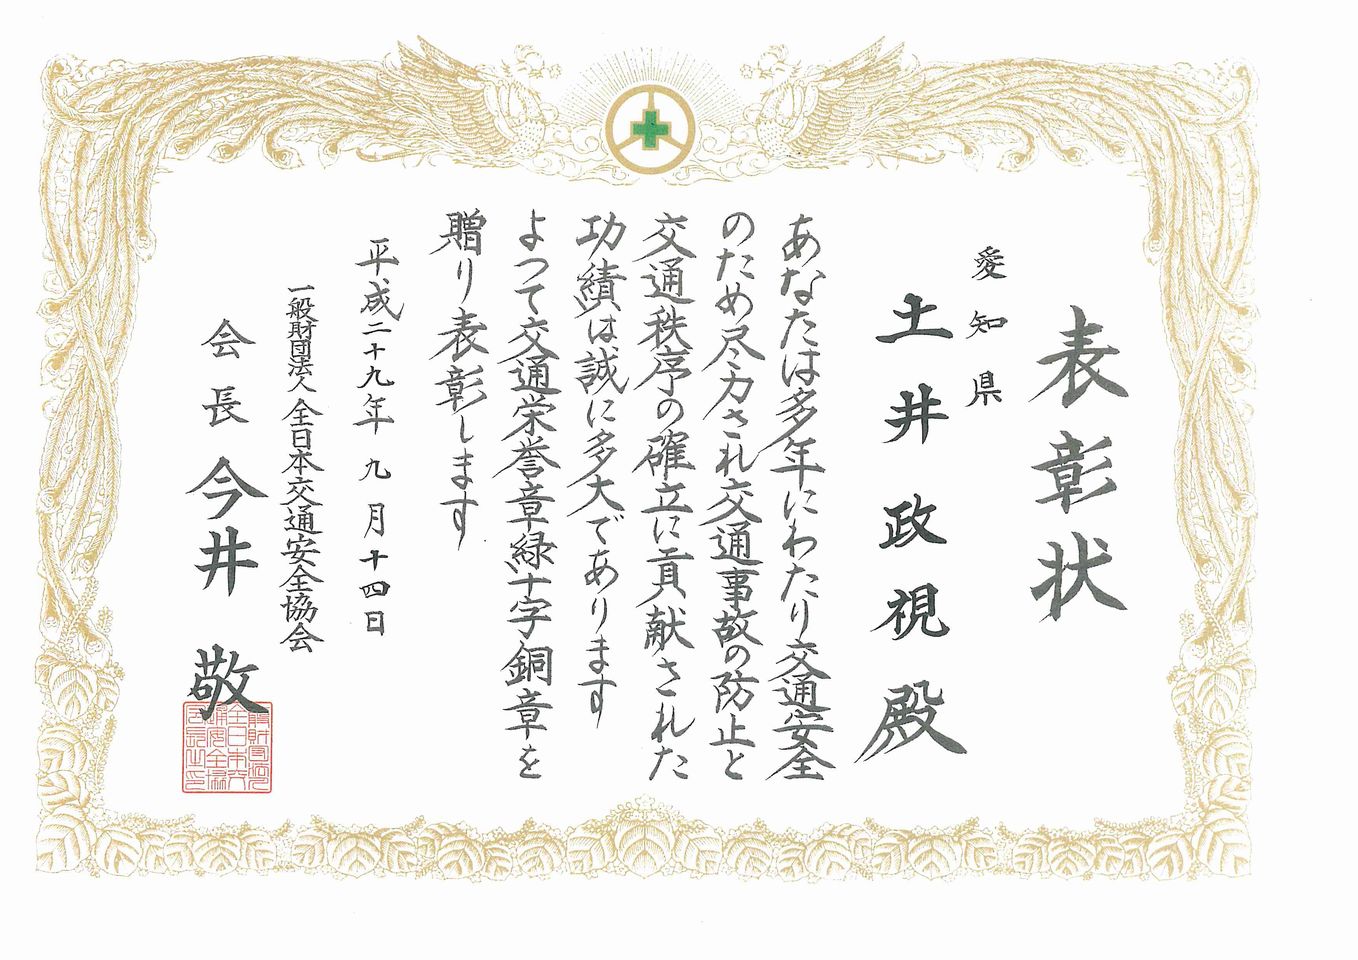 表彰状
愛知県
土井政視殿
あなたは多年にわたり交通安全
のため尽力され交通事故の防止と
交通秩序の確立に貢献された
功績は誠に多大であります
よつて交通栄誉章緑十字銅章を
贈り表彰します
平成二十九年九月十四日
一般財団法人全日本交通安全協会
会長今井敬